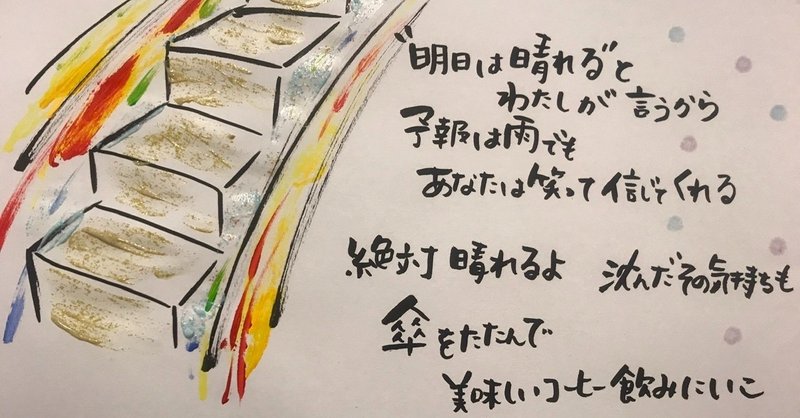 "明日は晴れる"と
わたしが言うから
予報は雨でも
あなたは笑って信じてくれる
絶対晴れるよ 沈んだその気持ちも
傘をたたんで
美味しいコーヒー飲みにいこ